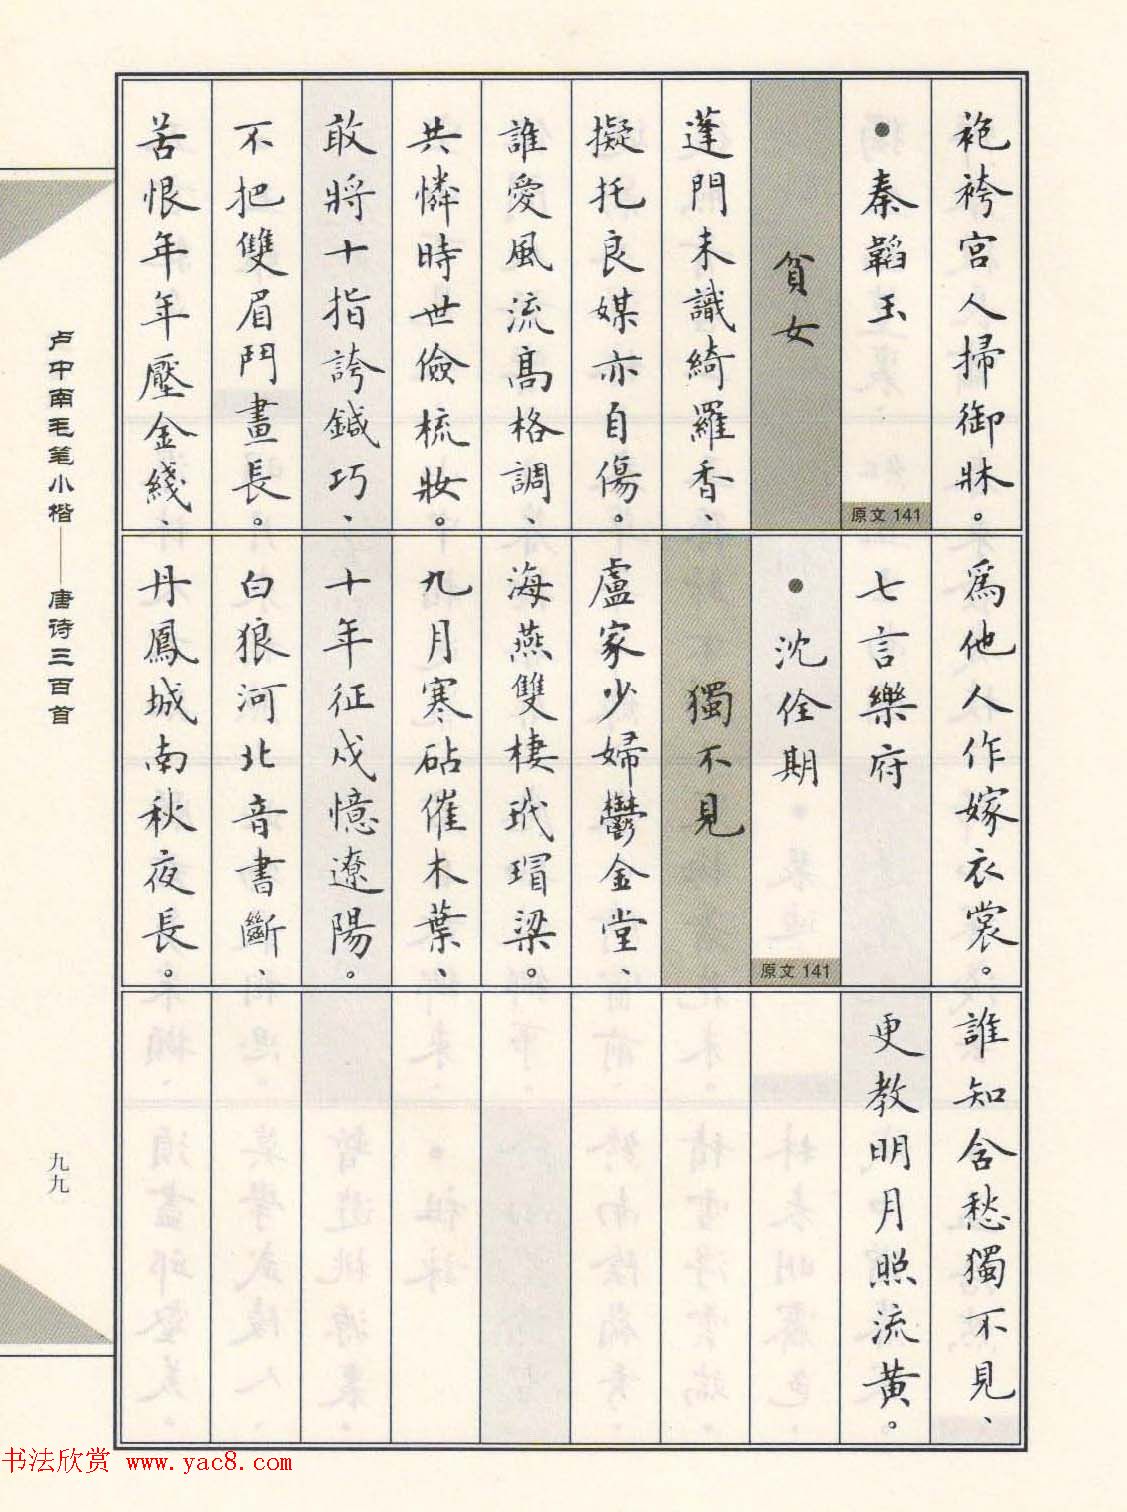 袍袴宮人掃御牀。
●秦韜玉
原文 141
貧女
蓬門未識綺羅香、
擬托良媒亦自傷。
誰愛風流高格調、
共憐時世儉梳妝。
敢將十指誇鍼巧、
不把雙眉鬥畫長。
苦恨年年壓金綫、
為他人作嫁衣裳。
七言樂府
●沈佺期
原文 141
獨不見
盧家少婦鬱金堂、
海燕雙棲玳瑁梁。
九月寒砧催木葉、
十年征戍憶遼陽。
白狼河北音書斷、
丹鳳城南秋夜長。
誰知含愁獨不見、
更教明月照流黃。
卢中南毛笔小楷——唐诗三百首
九九
书法欣赏 www.yac8.com